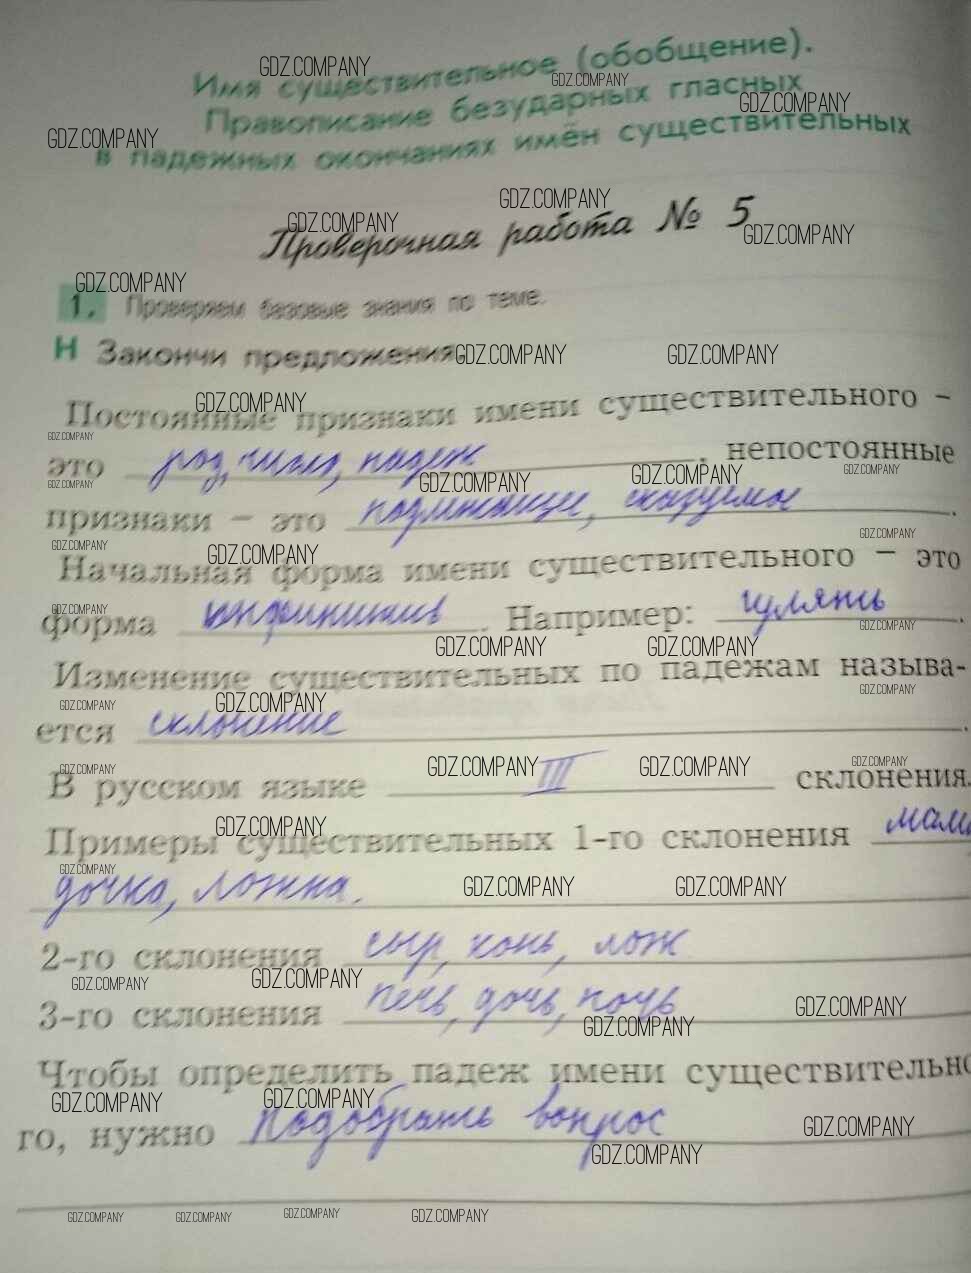 Имя существительное (обобщение).
Правописание безударных гласных
в падежных окончаниях имён существительных
Проверочная работа № 5
1. Проверяем базовые знания по теме.
Н Закончи предложения.
Постоянные признаки имени существительного –
это род, число, падеж, непостоянные
признаки – это подлежащие, сказуемое.
Начальная форма имени существительного – это
форма инфинитив. Например: гулять.
Изменение существительных по падежам называ-
ется склонение.
В русском языке III склонения.
Примеры существительных 1-го склонения мама
дочка, ложка.
2-го склонения сыр, конь, лож
3-го склонения печь, дочь, ночь
Чтобы определить падеж имени существительно
го, нужно подобрать вопрос
GDZ.COMPANY